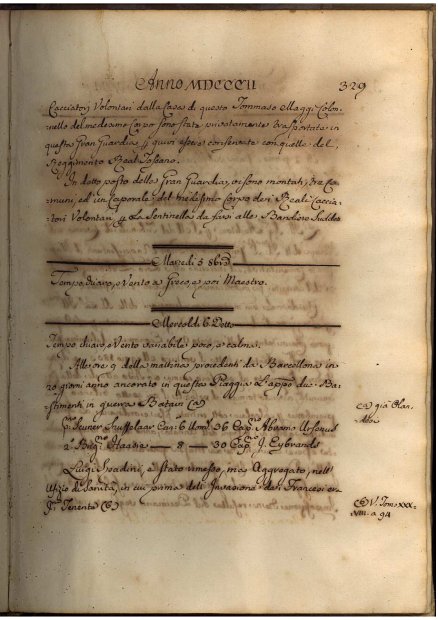 Anno MDCCCII
329
Cacciatori Volontari dalla Casa di questo Tommaso Maggi Colon-
nello del medesimo Corpo sono state privatamente trasportate in
questa Gran Guardia, p quivi essere conservate con quelle del
Reggimento Real Toscano.
In detto posto della Gran Guardia, ci sono montati, tre Co-
muni, ed un Caporale del medesimo Corpo dei Reali Caccia-
tori Volontari p La Sentinella da farsi alle Bandiere Suddte
Martedì 5 8bre
Tempo chiaro, e Vento a Greco, e poi Maestro.
Mercoldì 6 Detto
Tempo chiaro, e Vento variabile poco, e calma.
All'ore 9 della mattina procedenti da Barcellona in
giorni anno ancorato in questa Piaggia L'appo due Ba-
stimenti in guerra Batavi (a)
(a) già Olan-
desi
Can: 6 Uomi 36 Capno Abramo
2 Brigno 8 — 30 Capno J. Eybrands
Luigi è stato rimesso, ma Aggregato, nell'
Ufizio di Sanità, in cui prima dell'Invasione dei Francesi era
Tenente (b)
(b) V. Tomo XXX-
VIII. a 94